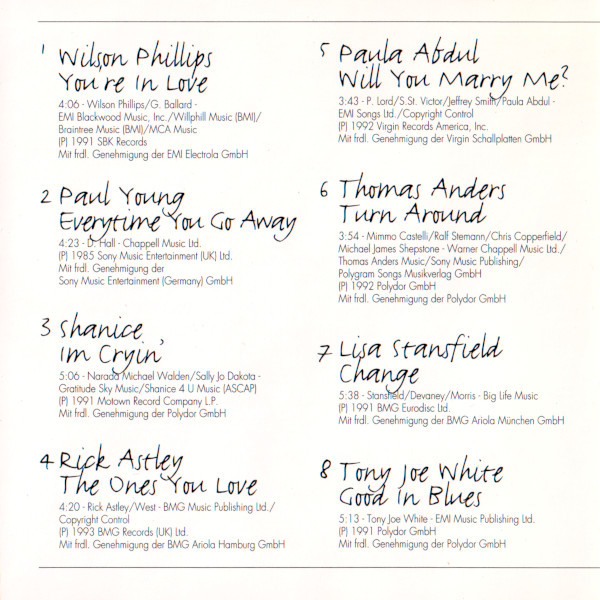 1 Wilson Phillips
You're In Love
4:06 - Wilson Phillips/G. Ballard -
EMI Blackwood Music, Inc./Willphill Music (BMI)/
Braintree Music (BMI)/MCA Music
(P) 1991 SBK Records
Mit frdl. Genehmigung der EMI Electrola GmbH
2 Paul Young
Everytime You Go Away
4:23 - D. Hall - Chappell Music Ltd.
(P) 1985 Sony Music Entertainment (UK) Ltd.
Mit frdl. Genehmigung der
Sony Music Entertainment (Germany) GmbH
3 Shanice
Im Cryin'
5:06 - Narada Michael Walden/Sally Jo Dakota -
Gratitude Sky Music/Shanice 4 U Music (ASCAP)
(P) 1991 Motown Record Company L.P.
Mit frdl. Genehmigung der Polydor GmbH
4 Rick Astley
The Ones You Love
4:20 - Rick Astley/West - BMG Music Publishing Ltd./
Copyright Control
(P) 1993 BMG Records (UK) Ltd.
Mit frdl. Genehmigung der BMG Ariola Hamburg GmbH
5 Paula Abdul
Will You Marry Me?
3:43 - P. Lord/S.St. Victor/Jeffrey Smith/Paula Abdul -
EMI Songs Ltd./Copyright Control
(P) 1992 Virgin Records America, Inc.
Mit frdl. Genehmigung der Virgin Schallplatten GmbH
6 Thomas Anders
Turn Around
3:54 - Mimmo Castelli/Ralf Stemann/Chris Copperfield/
Michael James Shepstone - Warner Chappell Music Ltd./
Thomas Anders Music/Sony Music Publishing/
Polygram Songs Musikverlag GmbH
(P) 1992 Polydor GmbH
Mit frdl. Genehmigung der Polydor GmbH
7 Lisa Stansfield
Change
5:38 - Stansfield/Devaney/Morris - Big Life Music
(P) 1991 BMG Eurodisc Ltd.
Mit frdl. Genehmigung der BMG Ariola München GmbH
8 Tony Joe White
Good In Blues
5:13 - Tony Joe White - EMI Music Publishing Ltd.
(P) 1991 Polydor GmbH
Mit frdl. Genehmigung der Polydor GmbH